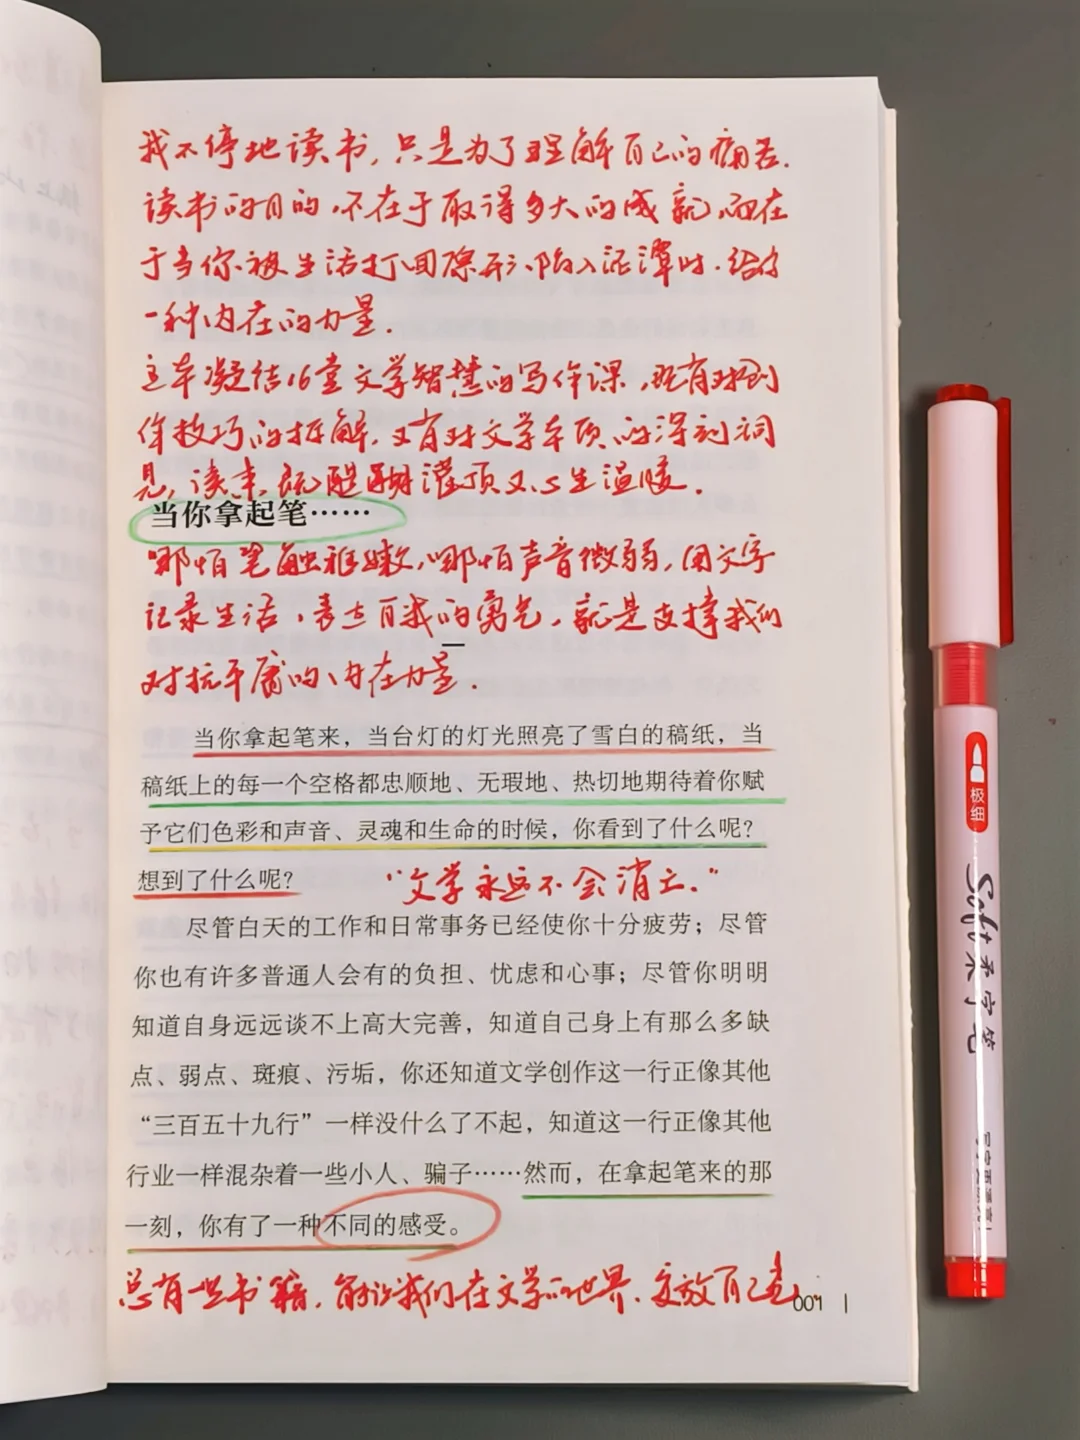 我不停地读书,只是为了理解自己的痛苦.
读书的目的,不在于取得多大的成就,而在
于当你被生活打回原形、陷入泥潭时.给你
一种内在的力量.
这本凝结16堂文学智慧的写作课,既有对创
作技巧的拆解,又有对文学本质的深刻洞
见,读来既醍醐灌顶又心生温暖.
当你拿起笔……
哪怕笔触稚嫩,哪怕声音微弱,用文字
记录生活,表达自我的勇气,就是支撑我们
对抗平庸的内在力量.
当你拿起笔来,当台灯的灯光照亮了雪白的稿纸,当
稿纸上的每一个空格都忠顺地、无瑕地、热切地期待着你赋
予它们色彩和声音、灵魂和生命的时候,你看到了什么呢?
想到了什么呢?
“文学永远不会消亡.”
尽管白天的工作和日常事务已经使你十分疲劳;尽管
你也有许多普通人会有的负担、忧虑和心事;尽管你明明
知道自身远远谈不上高大完善,知道自己身上有那么多缺
点、弱点、斑痕、污垢,你还知道文学创作这一行正像其他
“三百五十九行”一样没什么了不起,知道这一行正像其他
行业一样混杂着一些小人、骗子……然而,在拿起笔来的那
一刻,你有了一种不同的感受。
总有一些书籍,能让我们在文学的世界,安放自己
001
极细
Soft 柔字笔